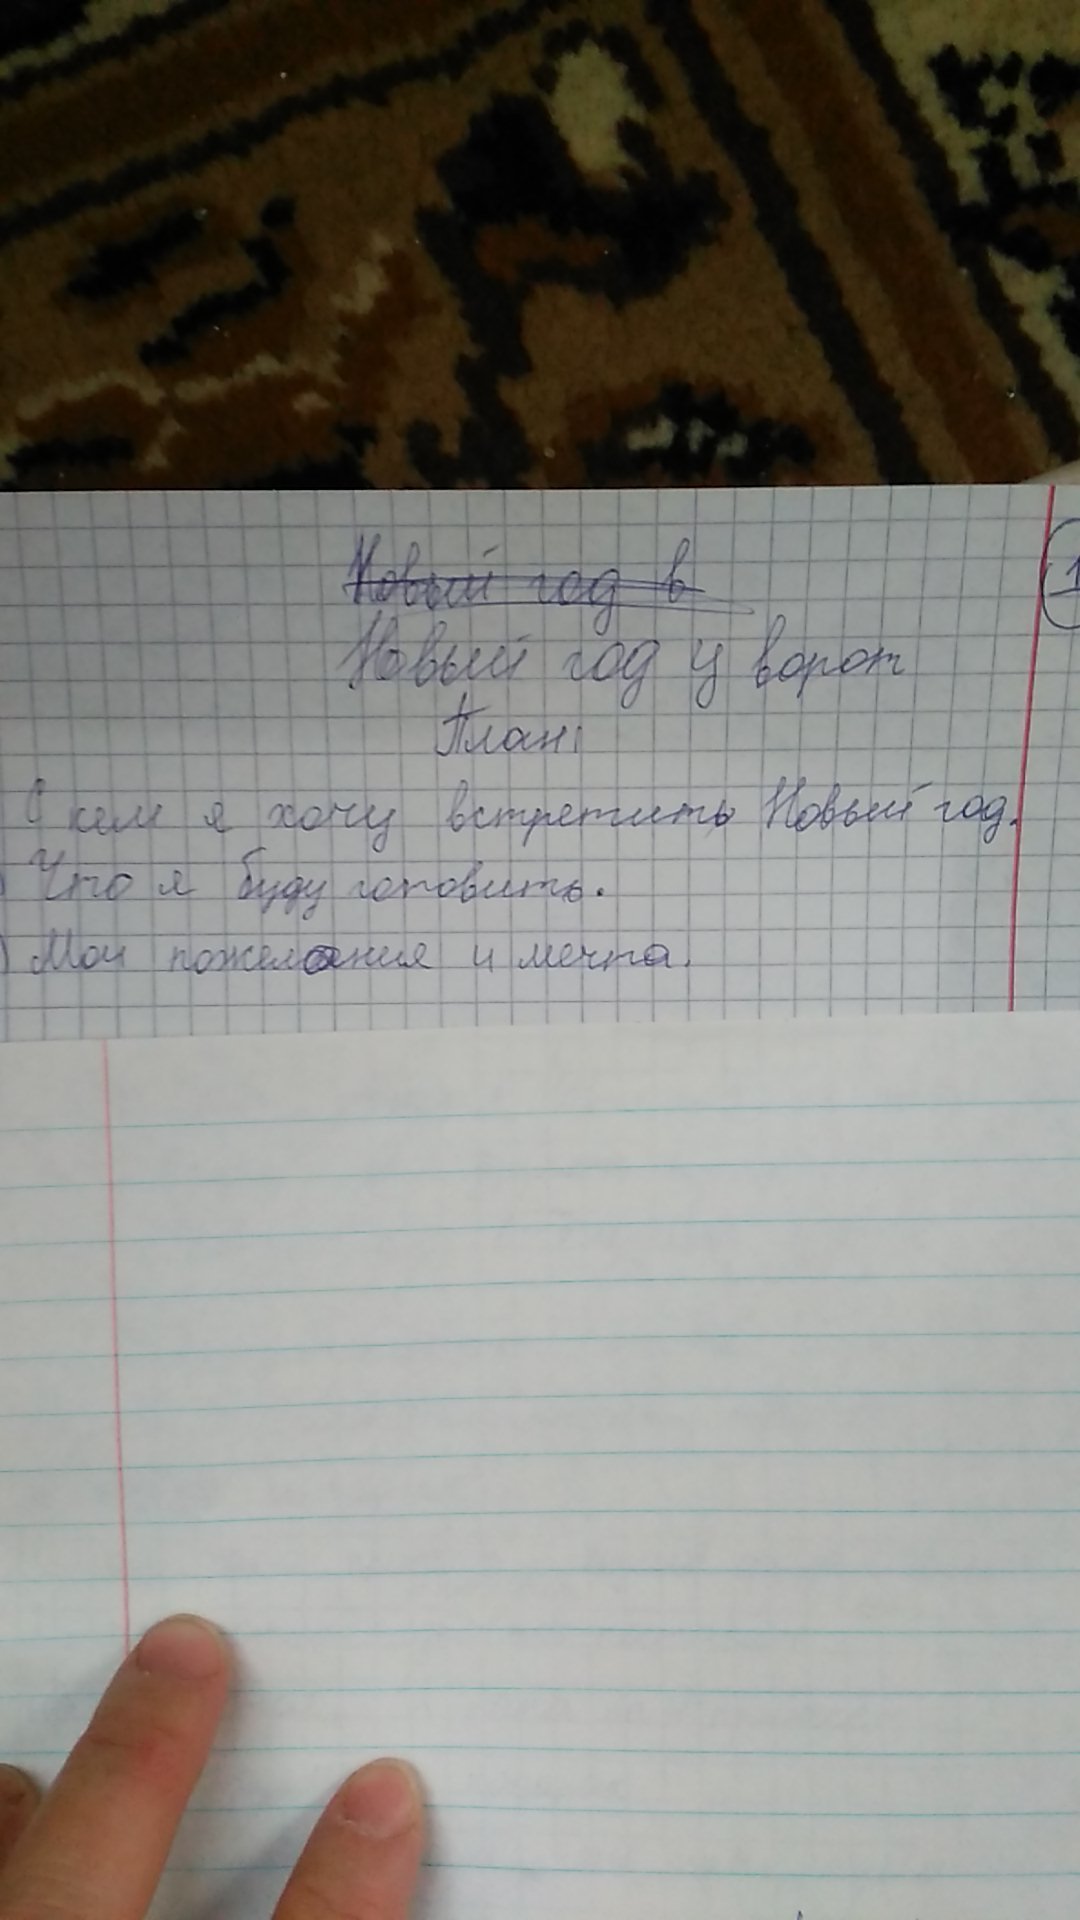 Новый год в
1
Новый год у ворот
План:
С кем я хочу встретить Новый год.
Что я буду готовить.
Мои пожелания и мечта.